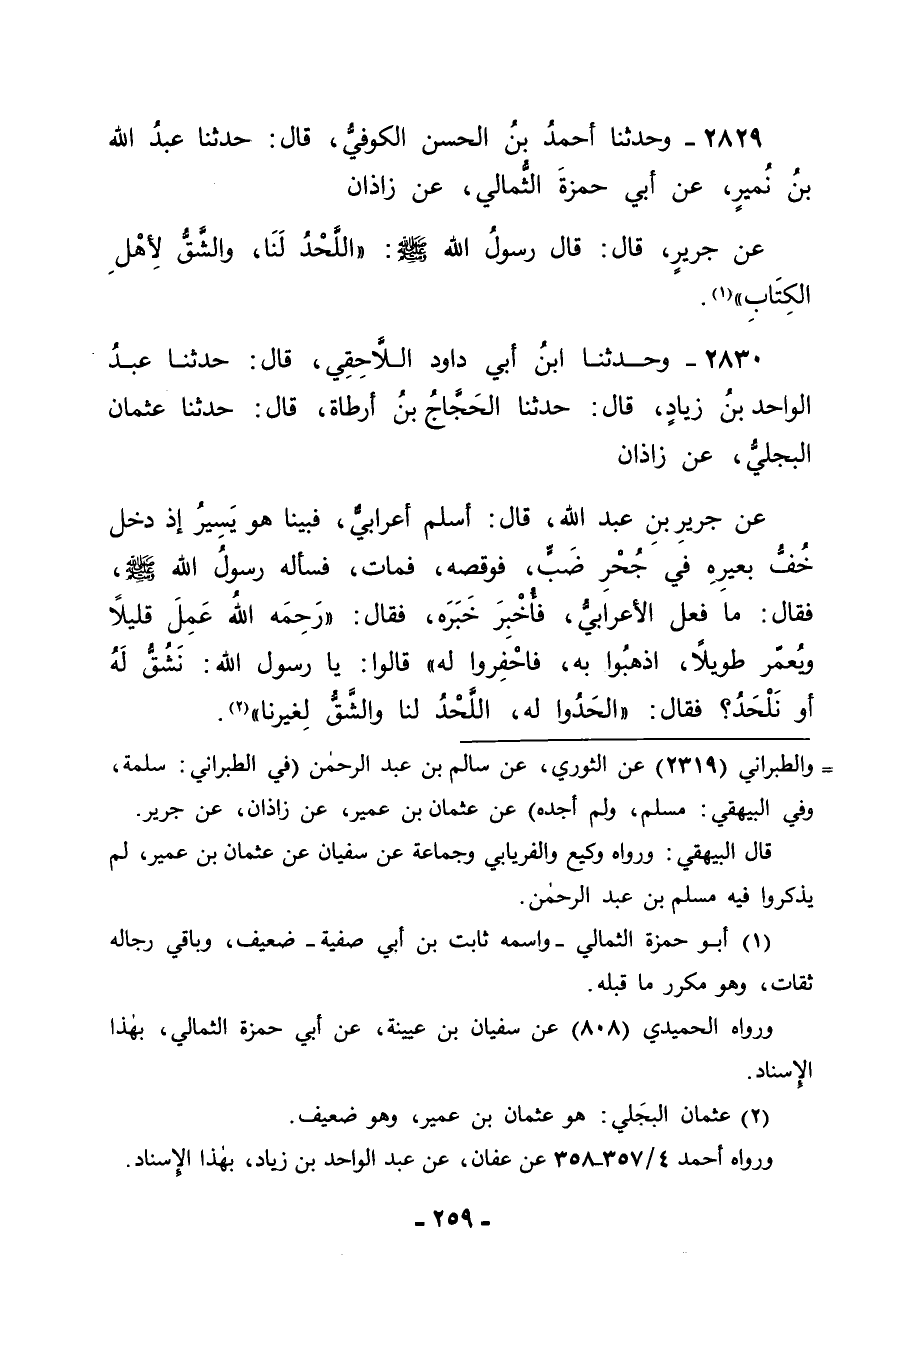 ٢٨٢٩ ـ وحدثنا أحمدُ بنُ الحسن الكوفيُّ، قال: حدثنا عبدُ الله
بنُ نُميرٍ، عن أبي حمزةَ الثُّمالي، عن زاذان
عن جريرٍ، قال: قال رسولُ الله ﷺ: «اللَّحْدُ لَنَا، والشَّقُّ لِأهْلِ
الكِتَابِ»(١).
٢٨٣٠ ـ وحـدثنـا ابنُ أبي داود اللَّاحِقِي، قال: حدثنـا عبـدُ
الواحد بنُ زيادٍ، قال: حدثنا الحَجَّاجُ بنُ أرطاة، قال: حدثنا عثمان
البجليُّ، عن زاذان
عن جريرِ بنِ عبد الله، قال: أسلم أعرابيٌّ، فبينا هو يَسِيرُ إذ دخل
خُفُّ بعيرِه في جُحْرِ ضَبٍّ، فوقصه، فمات، فسأله رسولُ الله ﷺ،
فقال: ما فعل الأعرابيُّ، فأُخْبِرَ خَبَرَه، فقال: «رَحِمَه اللهُ عَمِلَ قليلاً
ويُعمّر طويلاً، اذهبُوا به، فاحْفِروا له» قالوا: يا رسول الله: نَشُقُّ لَهُ
أو نَلْحَدُ؟ فقال: «الحَدُوا له، اللَّحْدُ لنا والشَّقُّ لِغيرنا»(٢).
= والطبراني (٢٣١٩) عن الثوري، عن سالم بن عبد الرحمٰن (في الطبراني: سلمة،
وفي البيهقي: مسلم، ولم أجده) عن عثمان بن عمير، عن زاذان، عن جرير.
قال البيهقي: ورواه وكيع والفريابي وجماعة عن سفيان عن عثمان بن عمير، لم
يذكروا فيه مسلم بن عبد الرحمٰن.
(١) أبـو حمزة الثمالي ـ واسمه ثابت بن أبي صفية ـ ضعيف، وباقي رجاله
ثقات، وهو مكرر ما قبله.
ورواه الحميدي (٨٠٨) عن سفيان بن عيينة، عن أبي حمزة الثمالي، بهٰذا
الإسناد.
(٢) عثمان البجَلي: هو عثمان بن عمير، وهو ضعيف.
ورواه أحمد ٤/ ٣٥٧ـ٣٥٨ عن عفان، عن عبد الواحد بن زياد، بهٰذا الإسناد.
ـ ٢٥٩ ـ